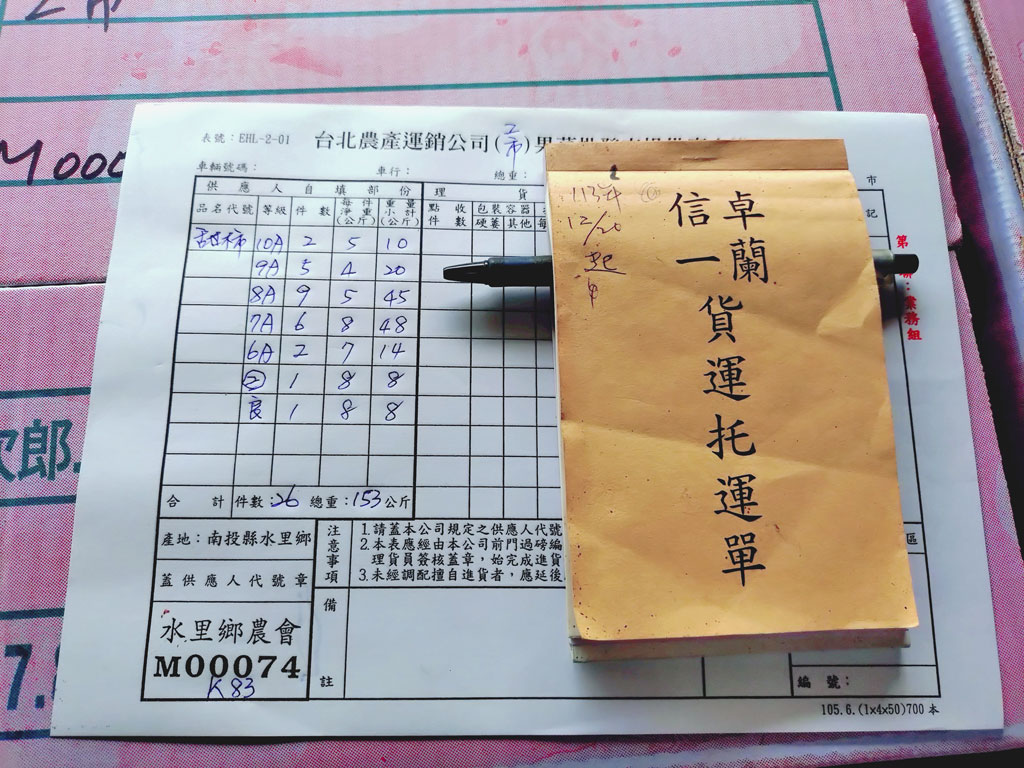 M000
表號：EHL-2-01
台北農產運銷公司(二市)
車輛號碼： 車行： 總重： 市
供應人自填部份 理 貨 記
品名代號 等級 件數 每件淨重(公斤) 重量小計(公斤) 點收件數 包裝 容器 硬萎 其他
甜柿 10A 2 5 10
9A 5 4 20
8A 9 5 45
7A 6 8 48
6A 2 7 14
② 1 8 8
良 1 8 8
合計 件數：26 總重：153公斤
產地：南投縣水里鄉
蓋供應人代號章
水里鄉農會
M00074
K83
注意事項
1.請蓋本公司規定之供應人代號
2.本表應經由本公司前門過磅編
理貨員簽核蓋章，始完成進貨
3.未經調配擅自進貨者，應延後
備註
區
編號：
105.6.(1x4x50)700本
第
聯：業務組
113年
12/20
起
卓蘭
信一
貨運托運單
次郎
7.